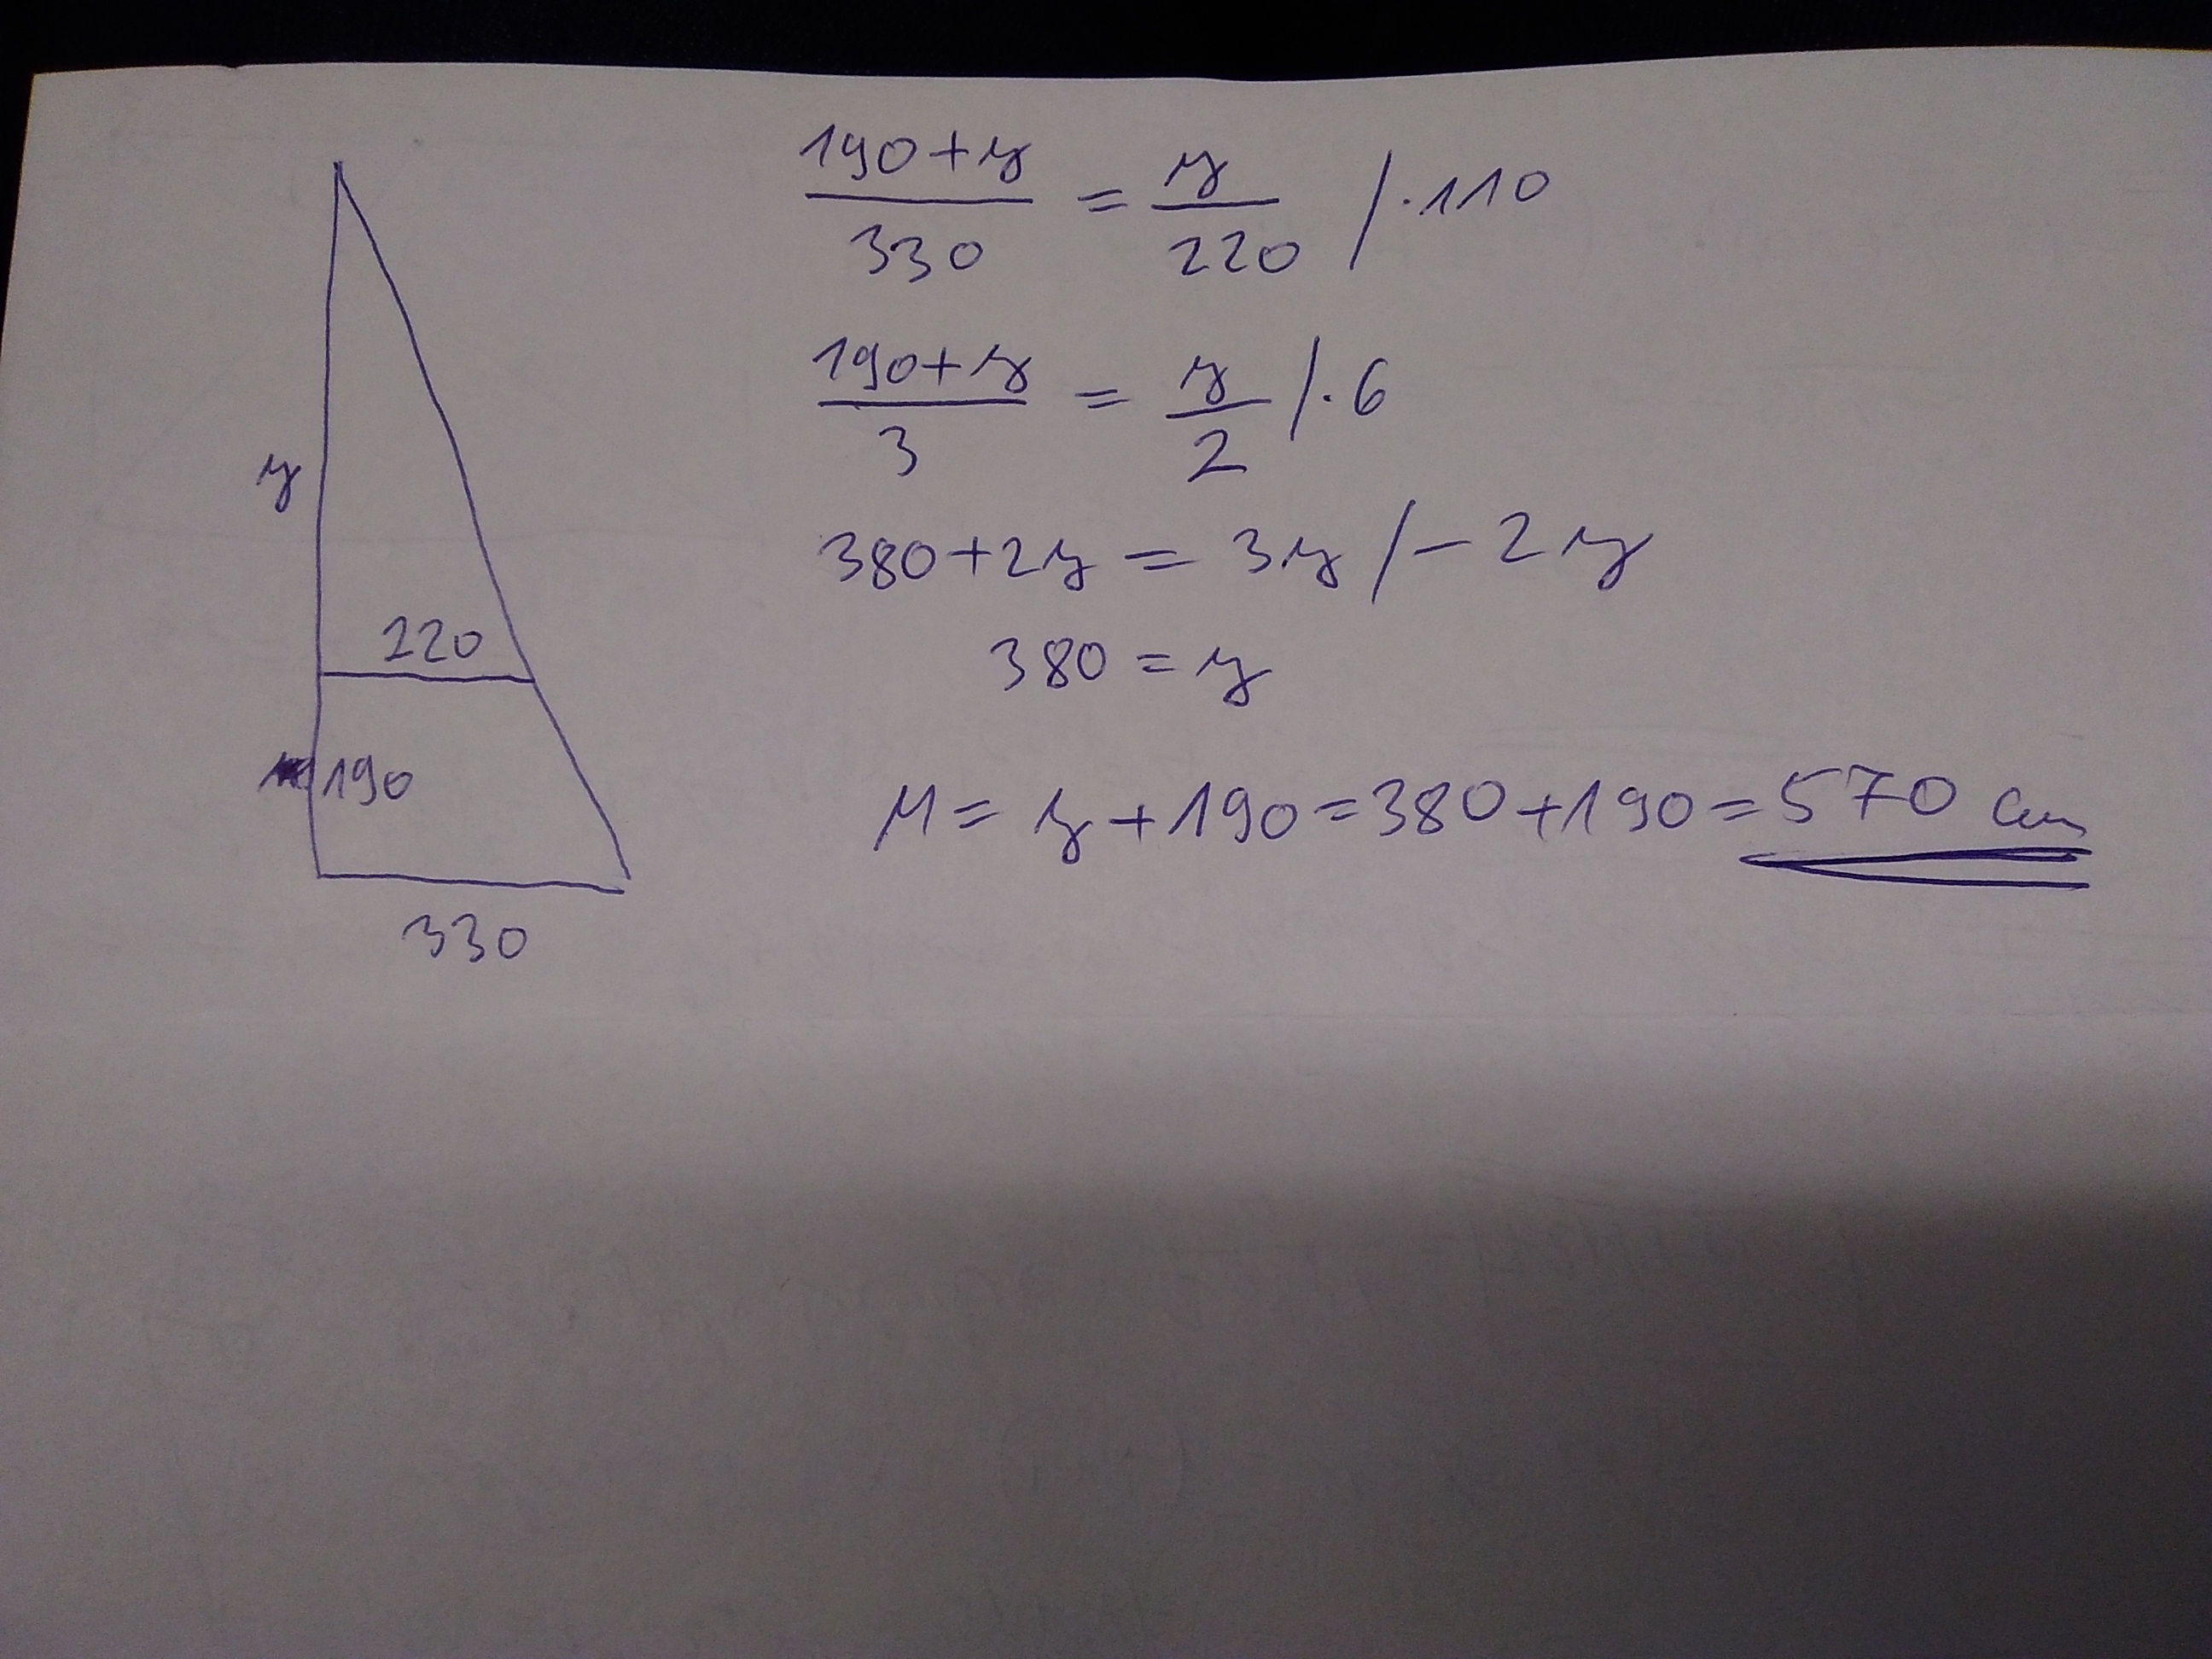 y
220
190
330
190+y / 330 = y / 220 / ·110
190+y / 3 = y / 2 / ·6
380+2y = 3y / -2y
380 = y
M = y+190=380+190=570 cm